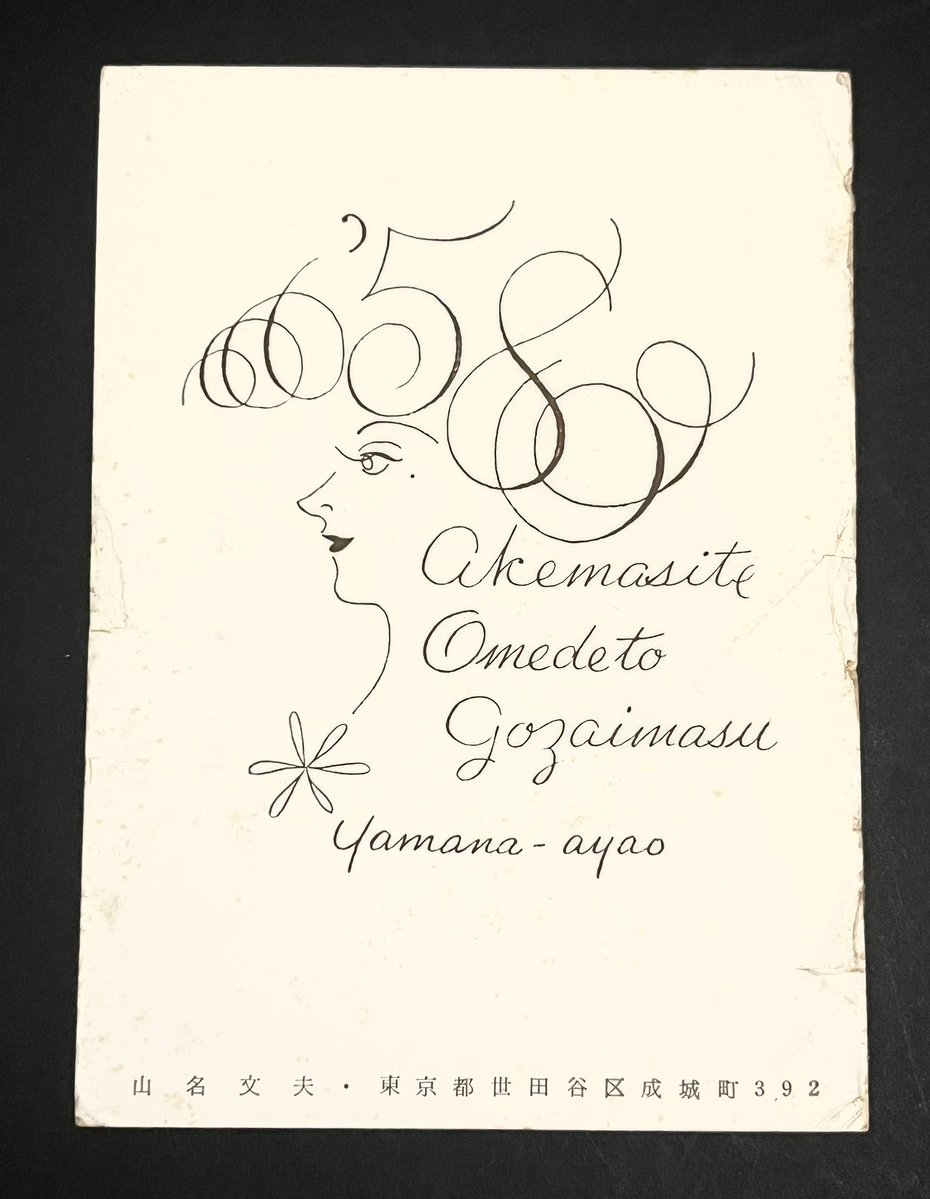 '58
Akemasite
Omedeto
Gozaimasu
Yamana-ayao
山名文夫・東京都世田谷区成城町392